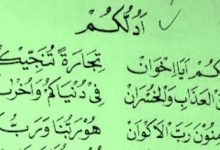 اَدُلُّكُمْ
كُمْ اَيَا اِخْوَانْ تِجَارَةً تُنْجِيْكُ
الْعَذَابِ وَالْخُسْرَانْ فِى دُنْيَاكُمْ وَاُخْرَ
رَبِّ الْاَكْوَانْ هُوَ رَبُّنَا وَرَبُّ